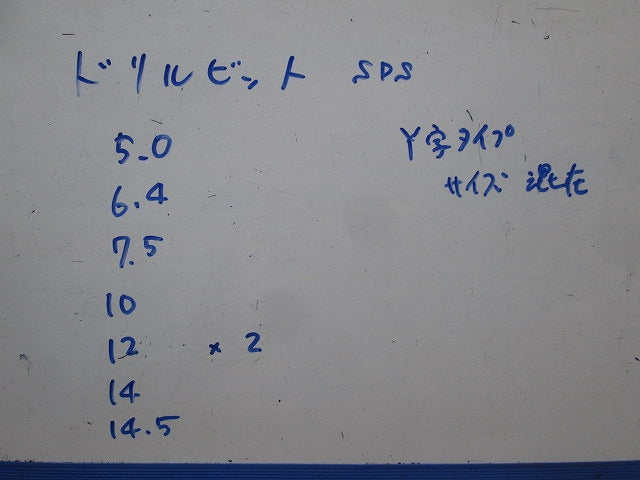 ドリルビット SDS
5.0
6.4
7.5
10
12 × 2
14
14.5
Y字タイプ
サイズ 混在